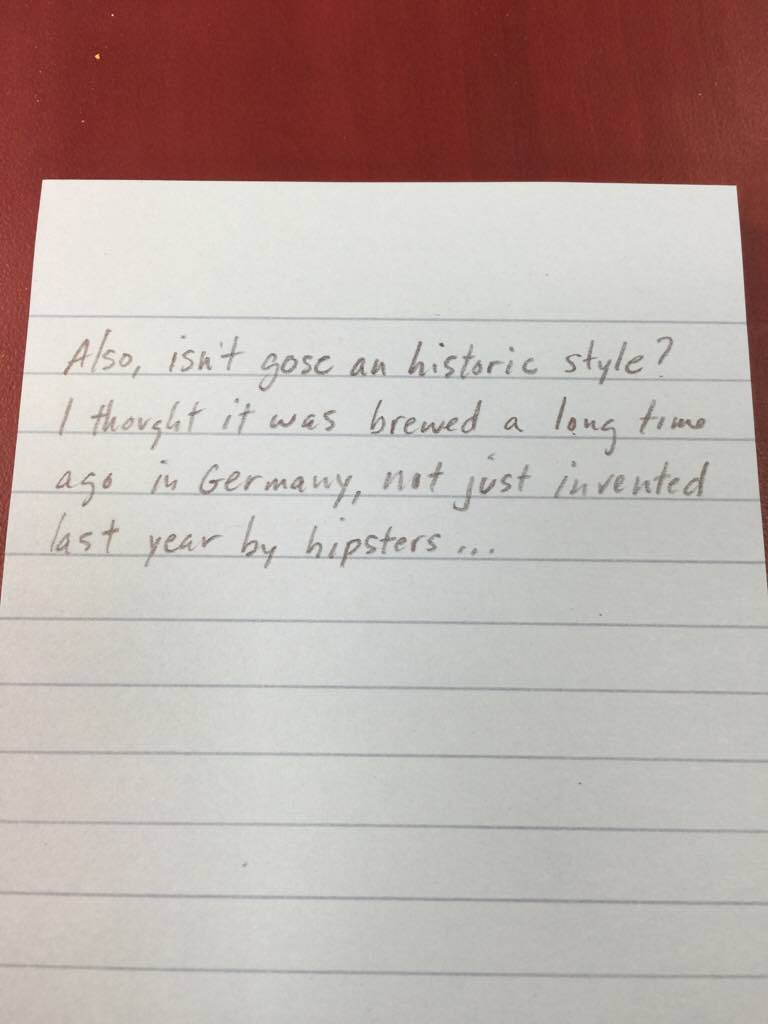 Also, isn't gose an historic style?
I thought it was brewed a long time
ago in Germany, not just invented
last year by hipsters...